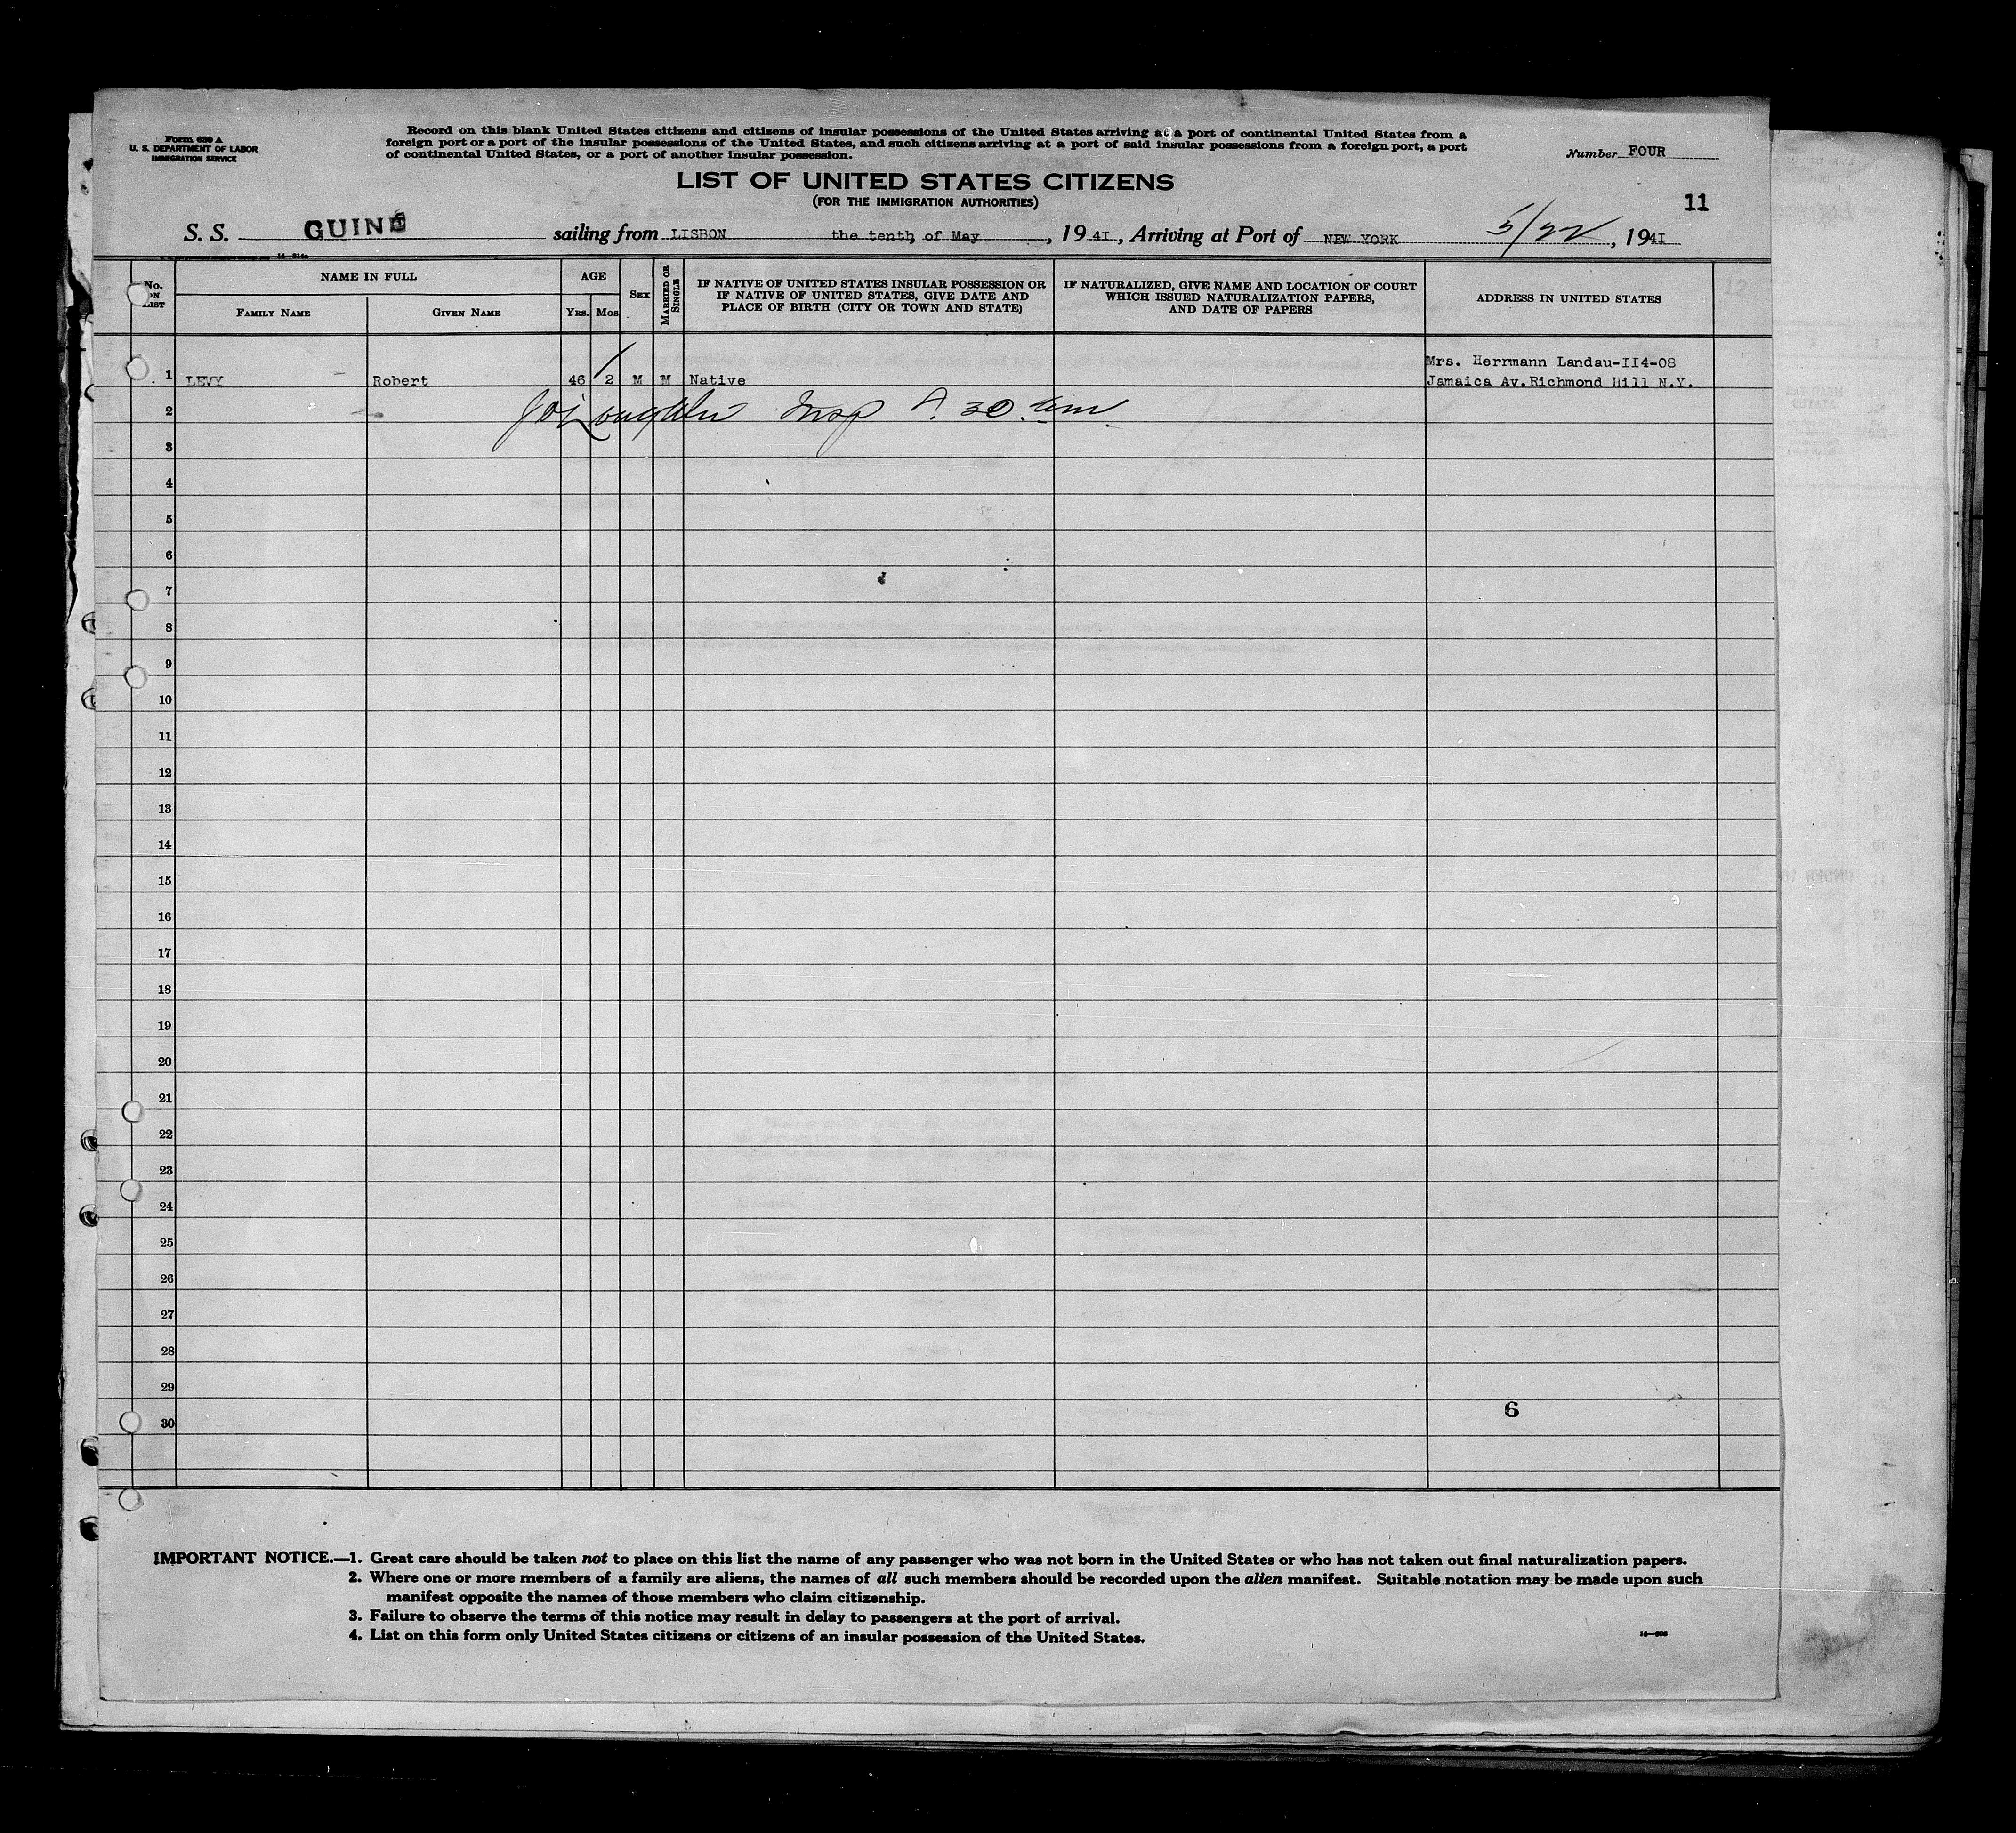 Form 630 A
U. S. DEPARTMENT OF LABOR
IMMIGRATION SERVICE
Record on this blank United States citizens and citizens of insular possessions of the United States arriving at a port of continental United States from a
foreign port or a port of the insular possessions of the United States, and such citizens arriving at a port of said insular possessions from a foreign port, a port
of continental United States, or a port of another insular possession.
Number FOUR
LIST OF UNITED STATES CITIZENS
(FOR THE IMMIGRATION AUTHORITIES)
11
S. S. GUINÉ sailing from LISBON the tenth of May, 1941, Arriving at Port of NEW YORK 5/22, 1941
No. ON LIST
NAME IN FULL
FAMILY NAME
GIVEN NAME
AGE
YRS.
MOS
SEX
MARRIED OR SINGLE
IF NATIVE OF UNITED STATES INSULAR POSSESSION OR
IF NATIVE OF UNITED STATES, GIVE DATE AND
PLACE OF BIRTH (CITY OR TOWN AND STATE)
IF NATURALIZED, GIVE NAME AND LOCATION OF COURT
WHICH ISSUED NATURALIZATION PAPERS,
AND DATE OF PAPERS
ADDRESS IN UNITED STATES
Mrs. Herrmann Landau-II4-08
1 LEVY Robert 46 2 M M Native Jamaica Av. Richmond Hill N.Y.
2 Insp 30
3
4
5
6
7
8
9
10
11
12
13
14
15
16
17
18
19
20
21
22
23
24
25
26
27
28
29
30
6
IMPORTANT NOTICE.—1. Great care should be taken not to place on this list the name of any passenger who was not born in the United States or who has not taken out final naturalization papers.
2. Where one or more members of a family are aliens, the names of all such members should be recorded upon the alien manifest. Suitable notation may be made upon such
manifest opposite the names of those members who claim citizenship.
3. Failure to observe the terms of this notice may result in delay to passengers at the port of arrival.
4. List on this form only United States citizens or citizens of an insular possession of the United States.